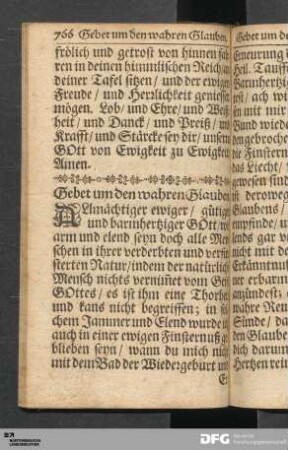 766 Gebet um den wahren Glauben.
frölich und getrost von hinnen fah
ren in deinen himmlischen Reich/ an
deiner Tafel sitzen/ und der ewigen
Freude / und Herrlichkeit geniessen
mögen. Lob/ und Ehre/ und Weiß
heit/ und Danck/ und Preiß/ und
Krafft/ und Stärcke sey dir/ unserm
GOtt von Ewigkeit zu Ewigkeit
Amen.
Gebet um den wahren Glauben
ALlmächtiger ewiger/ gütiger
und barmhertziger GOtt/ wie
arm und elend seyn doch alle Men
schen in ihrer verderbten und verfin
sterten Natur/ indem der natürliche
Mensch nichts vernimmt vom Geist
GOttes/ es ist ihm eine Thorheit
und kans nicht begreiffen; in sol
chem Jammer und Elend wurde ich
auch in einer ewigen Finsternuß ge
blieben seyn/ wann du mich nicht
mit dem Bad der Wiedergeburt und
Er
Gebet um de
Erneurung d
Heil. Tauff
Barmhertzig
rost/ ach wi
en mit mir
Bund wieder
den gebroche
die Finstern
das Liecht/
gewesen sind
st derowege
Glaubens/
empfinde/ un
lends gar v
nicht mit de
Erkänntnuß
ner erbarm
anzündest; d
wahre Reu
Sünde/ da
den Glaube
dich darum
Hertzen rein
WÜRTTEMBERGISCHE
LANDESBIBLIOTHEK
DFG
Deutsche
Forschungsgemeinschaft